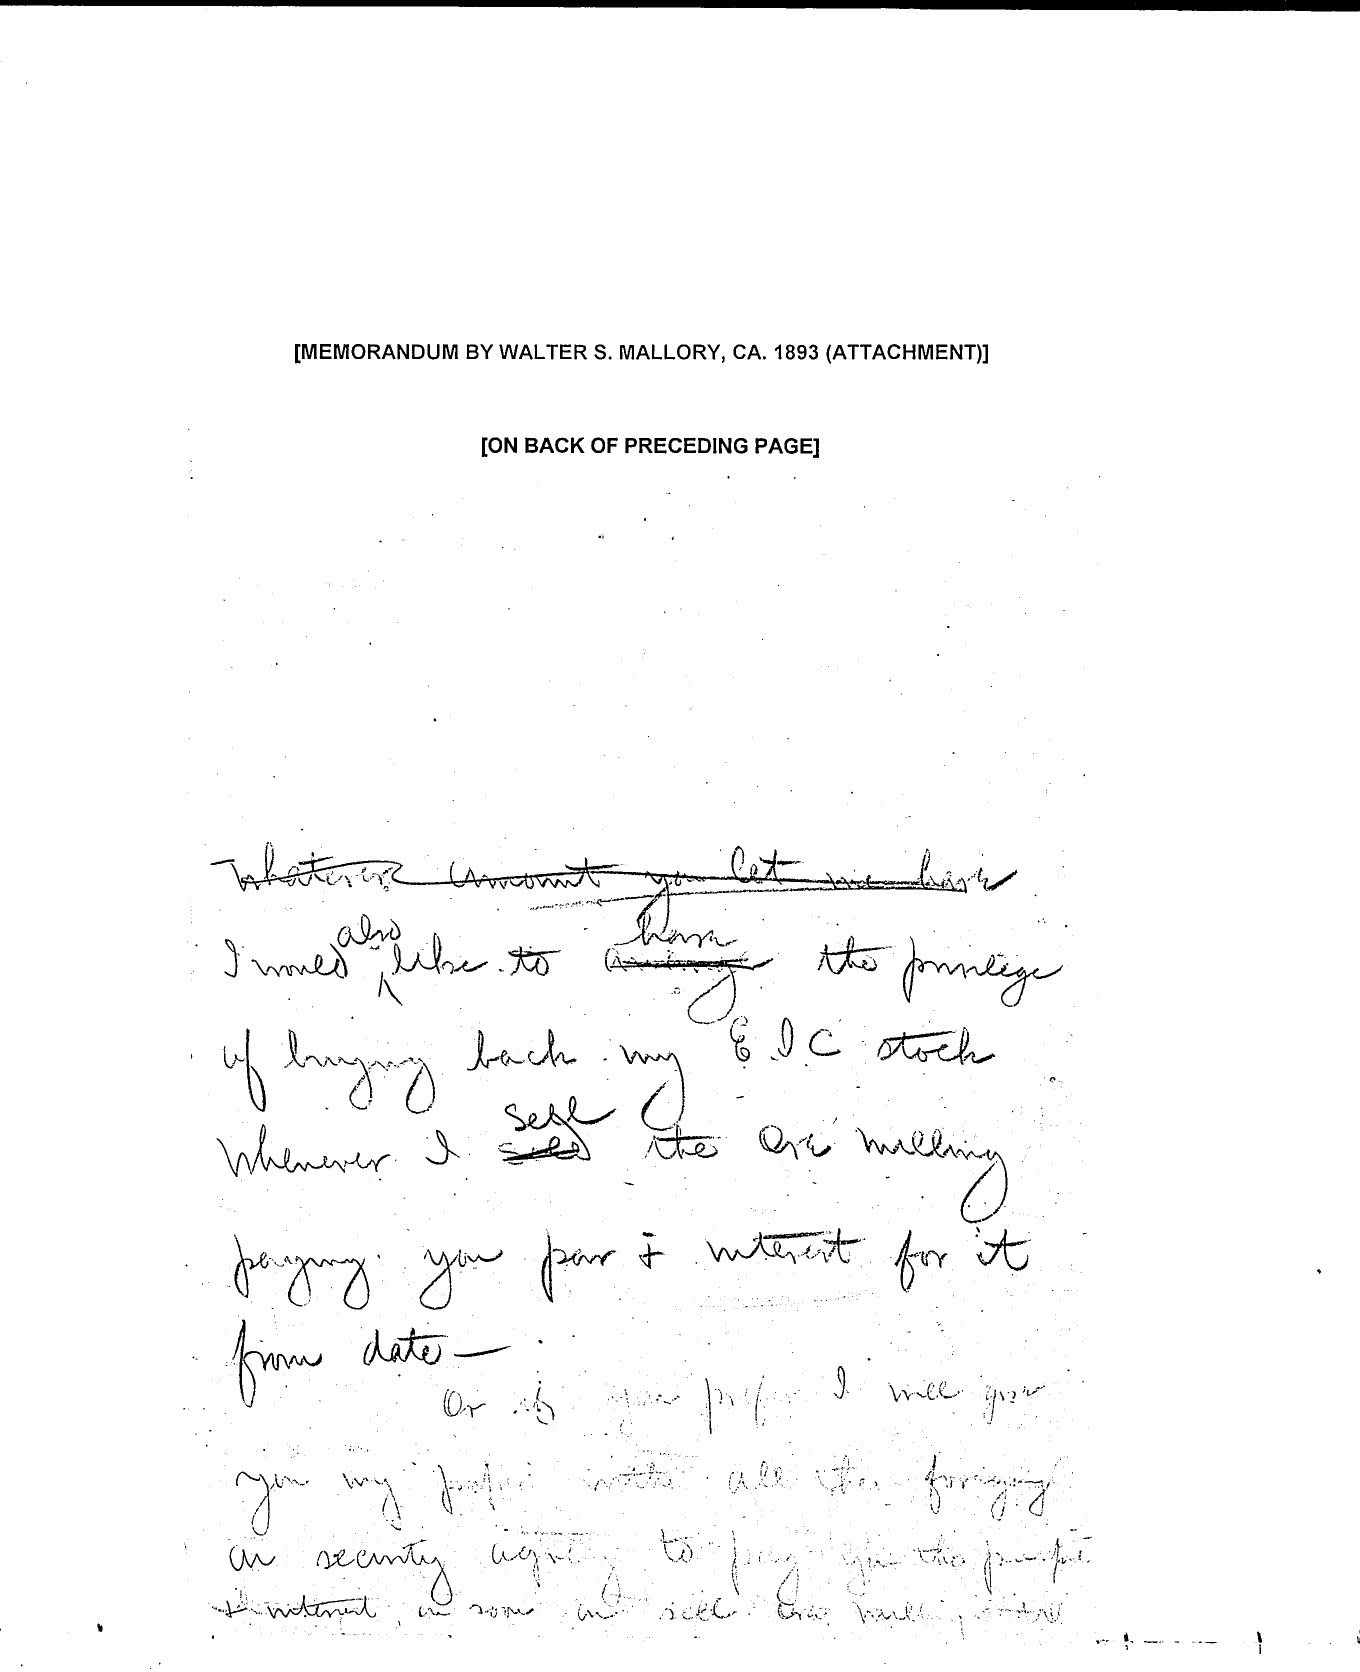 [MEMORANDUM BY WALTER S. MALLORY, CA. 1893 (ATTACHMENT)]
[ON BACK OF PRECEDING PAGE]
Whatever amount you let me have
I would also like to have the privilege
of buying back my E I C stock
whenever I sell the Ore milling
paying you par & interest for it
from date —
Or if you prefer I will give
you my paper with all the foregoing
as security agreeing to pay you the
& interest as soon as sell ore milling